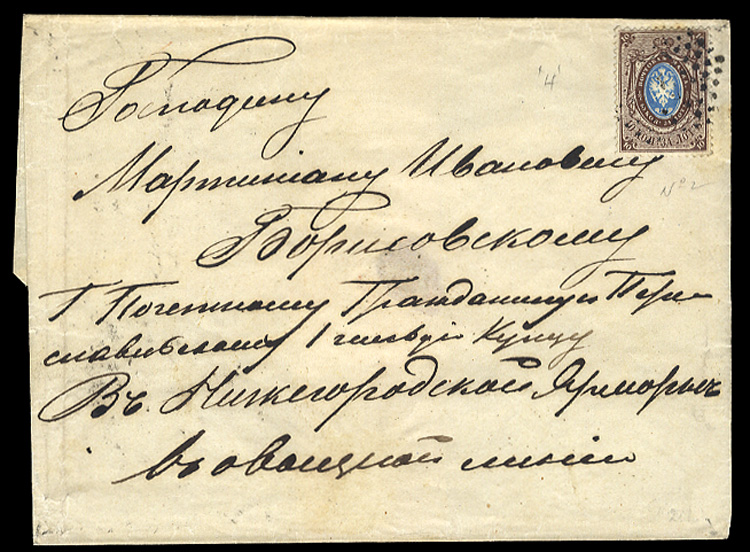 Господину
Мартиніану Ивановичу
Борисовскому
Г. Почетному Гражданину и Пере-
славскому 1 гильдіи Купцу
Въ Нижегородской Ярмаркѣ
въ овощной линіи
"4"
№ 2
10 КОП. ЗА ЛОТ